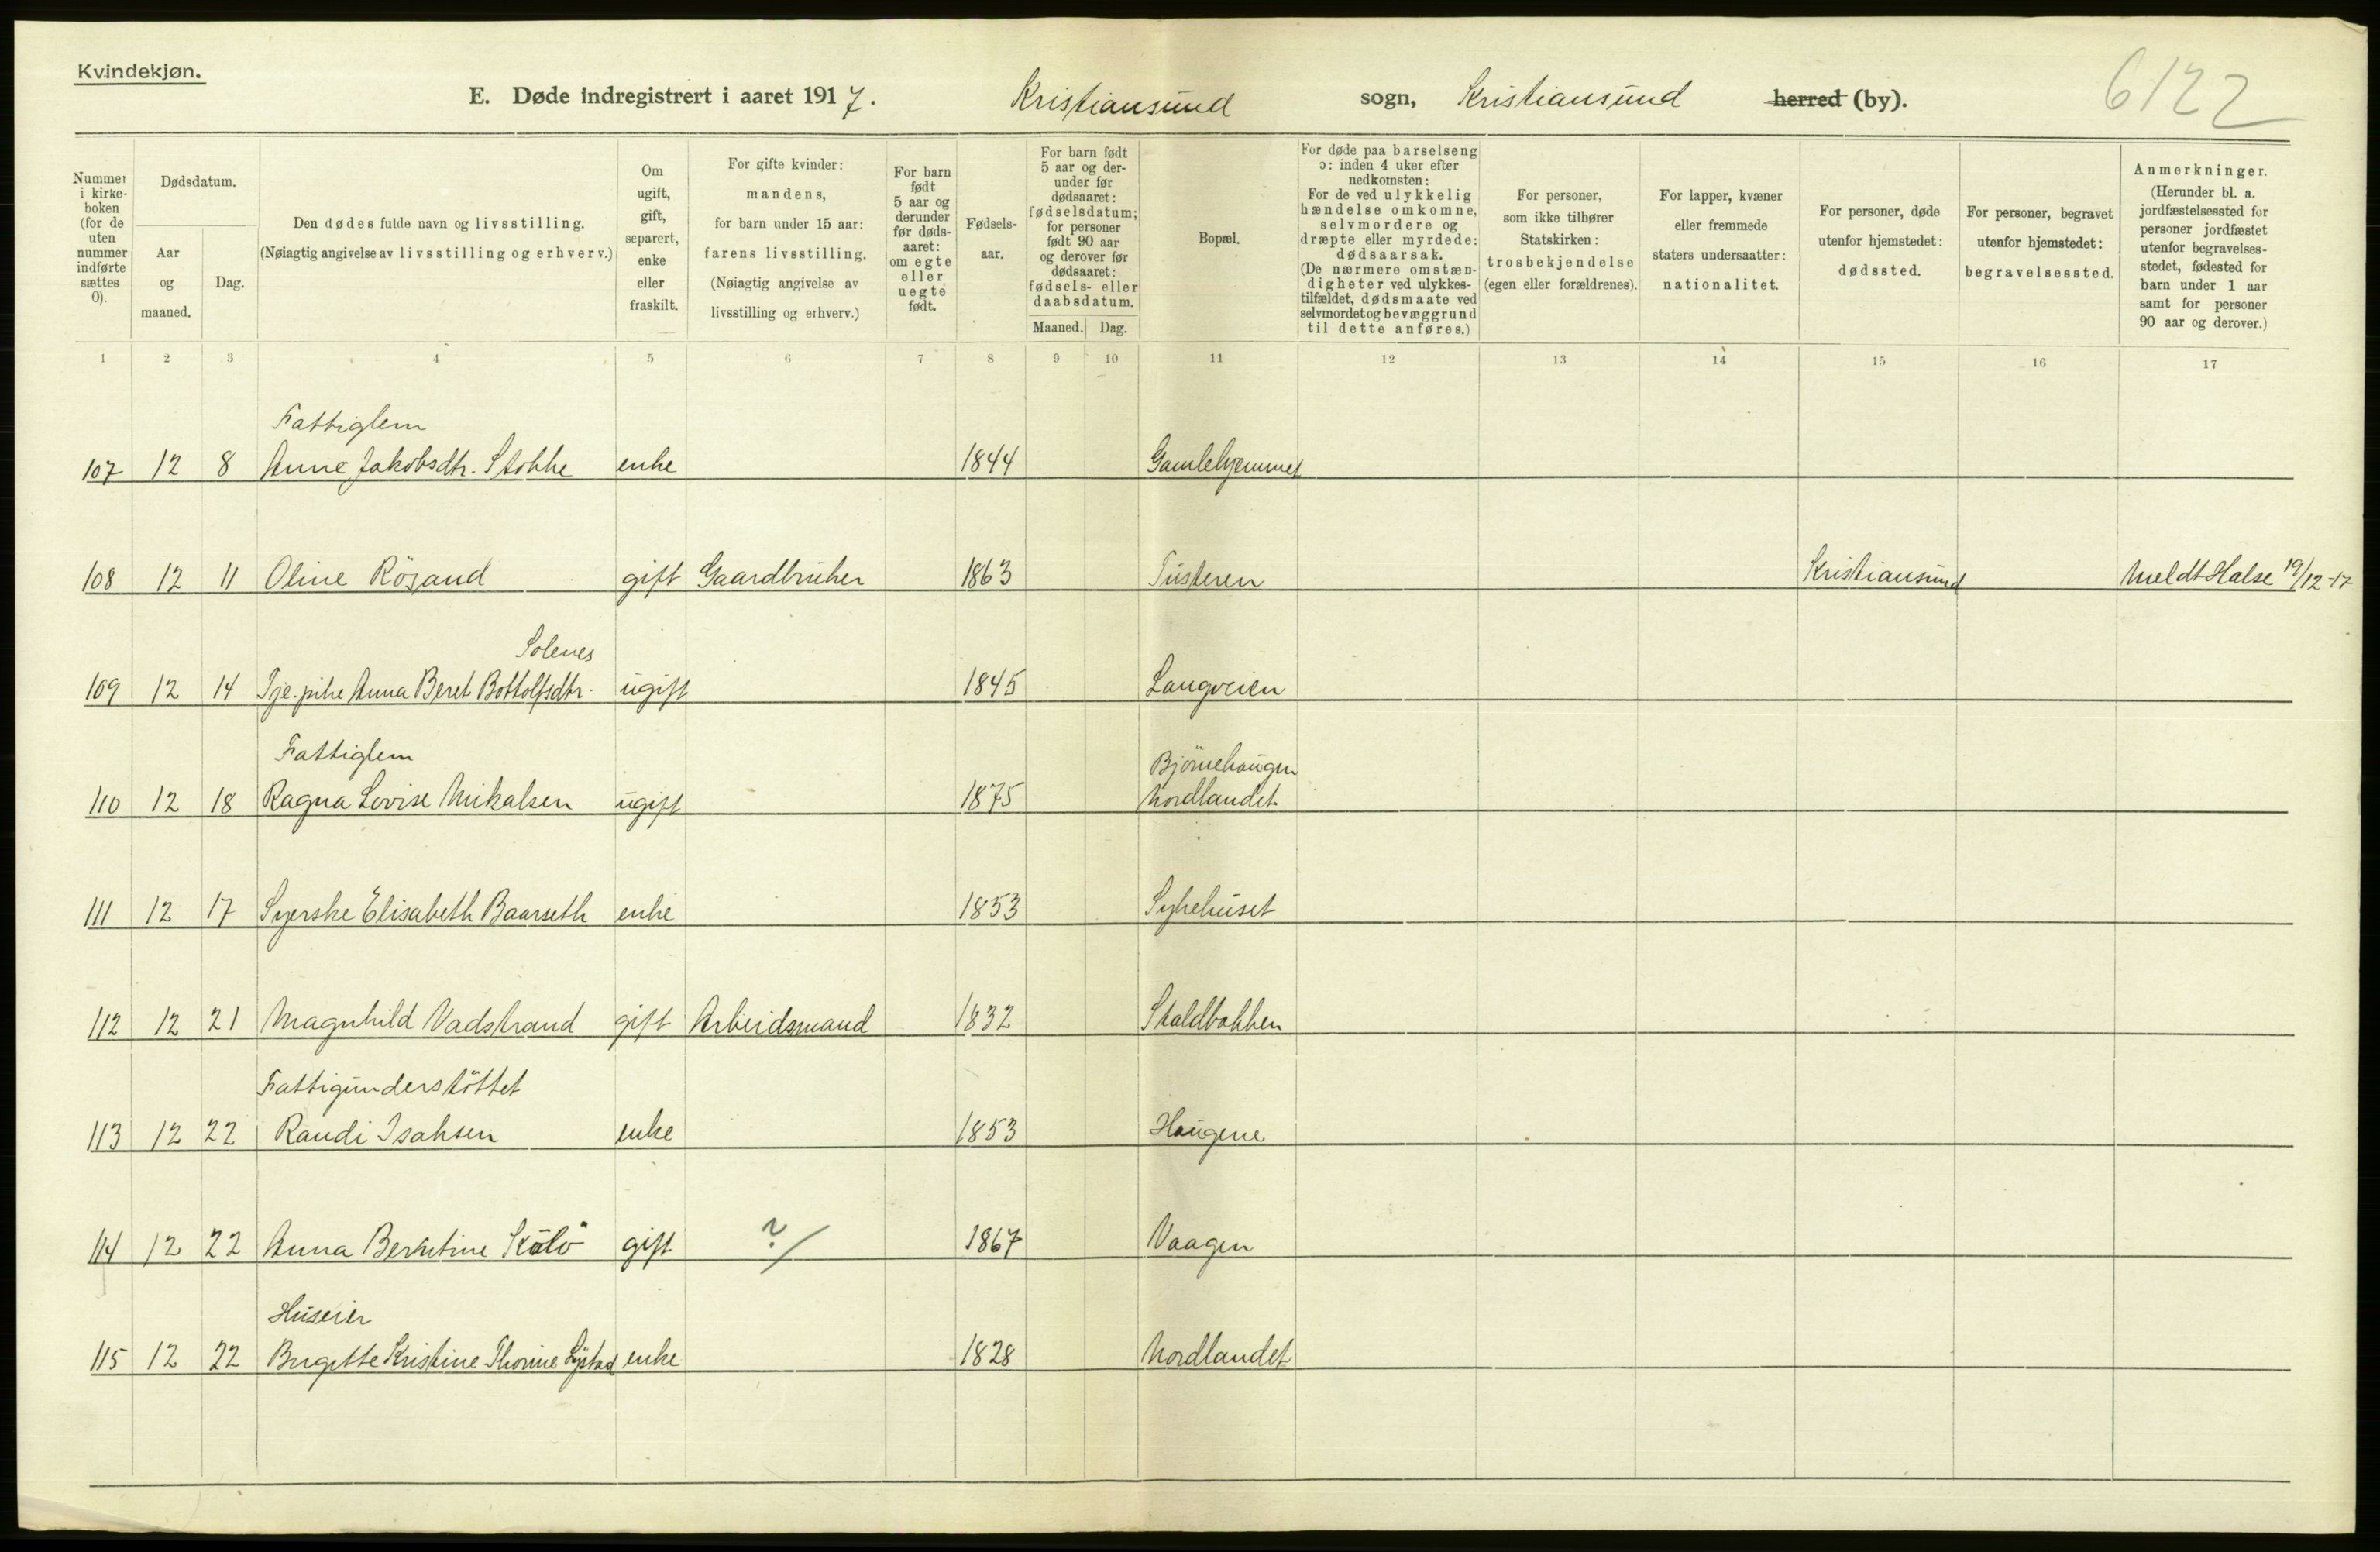 Kvindekjøn.
E. Døde indregistrert i aaret 1917. Kristiansund sogn, Kristiansund herred (by).
6122
Nummer i kirkeboken (for de uten nummer indførte sættes 0).
Dødsdatum.
Aar og maaned.
Dag.
Den dødes fulde navn og livsstilling.
(Nøiagtig angivelse av livsstilling og erhverv.)
Om ugift, gift, separert, enke eller fraskilt.
For gifte kvinder: mandens, for barn under 15 aar: farens livsstilling. (Nøiagtig angivelse av livsstilling og erhverv.)
For barn født 5 aar og derunder før dødsaaret: om egte eller uegte født.
Fødselsaar.
For barn født 5 aar og derunder før dødsaaret: fødselsdatum; for personer født 90 aar og derover før dødsaaret: fødsels- eller daabsdatum.
Maaned. Dag.
Bopæl.
For døde paa barselseng ɔ: inden 4 uker efter nedkomsten: For de ved ulykkelig hændelse omkomne, selvmordere og dræpte eller myrdede: dødsaarsak. (De nærmere omstændigheter ved ulykkestilfældet, dødsmaate ved selvmordet og bevæggrund til dette anføres.)
For personer, som ikke tilhører Statskirken: trosbekjendelse (egen eller forældrenes).
For lapper, kvæner eller fremmede staters undersaatter: nationalitet.
For personer, døde utenfor hjemstedet: dødssted.
For personer, begravet utenfor hjemstedet: begravelsessted.
Anmerkninger. (Herunder bl. a. jordfæstelsessted for personer jordfæstet utenfor begravelsesstedet, fødested for barn under 1 aar samt for personer 90 aar og derover.)
1 2 3 4 5 6 7 8 9 10 11 12 13 14 15 16 17
Fattiglem
107 12 8 Anne Jakobsdtr. Stokke enke 1844 Gamlehjemmet
108 12 11 Oline Rösand gift Gaardbruker 1863 Tusteren Kristiansund Meldt Halse 19/12-17
Solenes
109 12 14 Tje.pike Anna Beret Bottolfsdtr. ugift 1845 Langveien
Fattiglem Björnehaugen
110 12 18 Ragna Lovise Mikalsen ugift 1875 Nordlandet
111 12 17 Syerske Elisabeth Baarseth enke 1853 Sykehuset
112 12 21 Magnhild Vadstrand gift Arbeidsmand 1832 Staldbakken
Fattigunderstöttet
113 12 22 Randi Isaksen enke 1853 Haugene
114 12 22 Anna Berntine Skålö gift ?/ 1867 Vaagen
Huseier
115 12 22 Birgitte Kristine Thorine Lystad enke 1828 Nordlandet